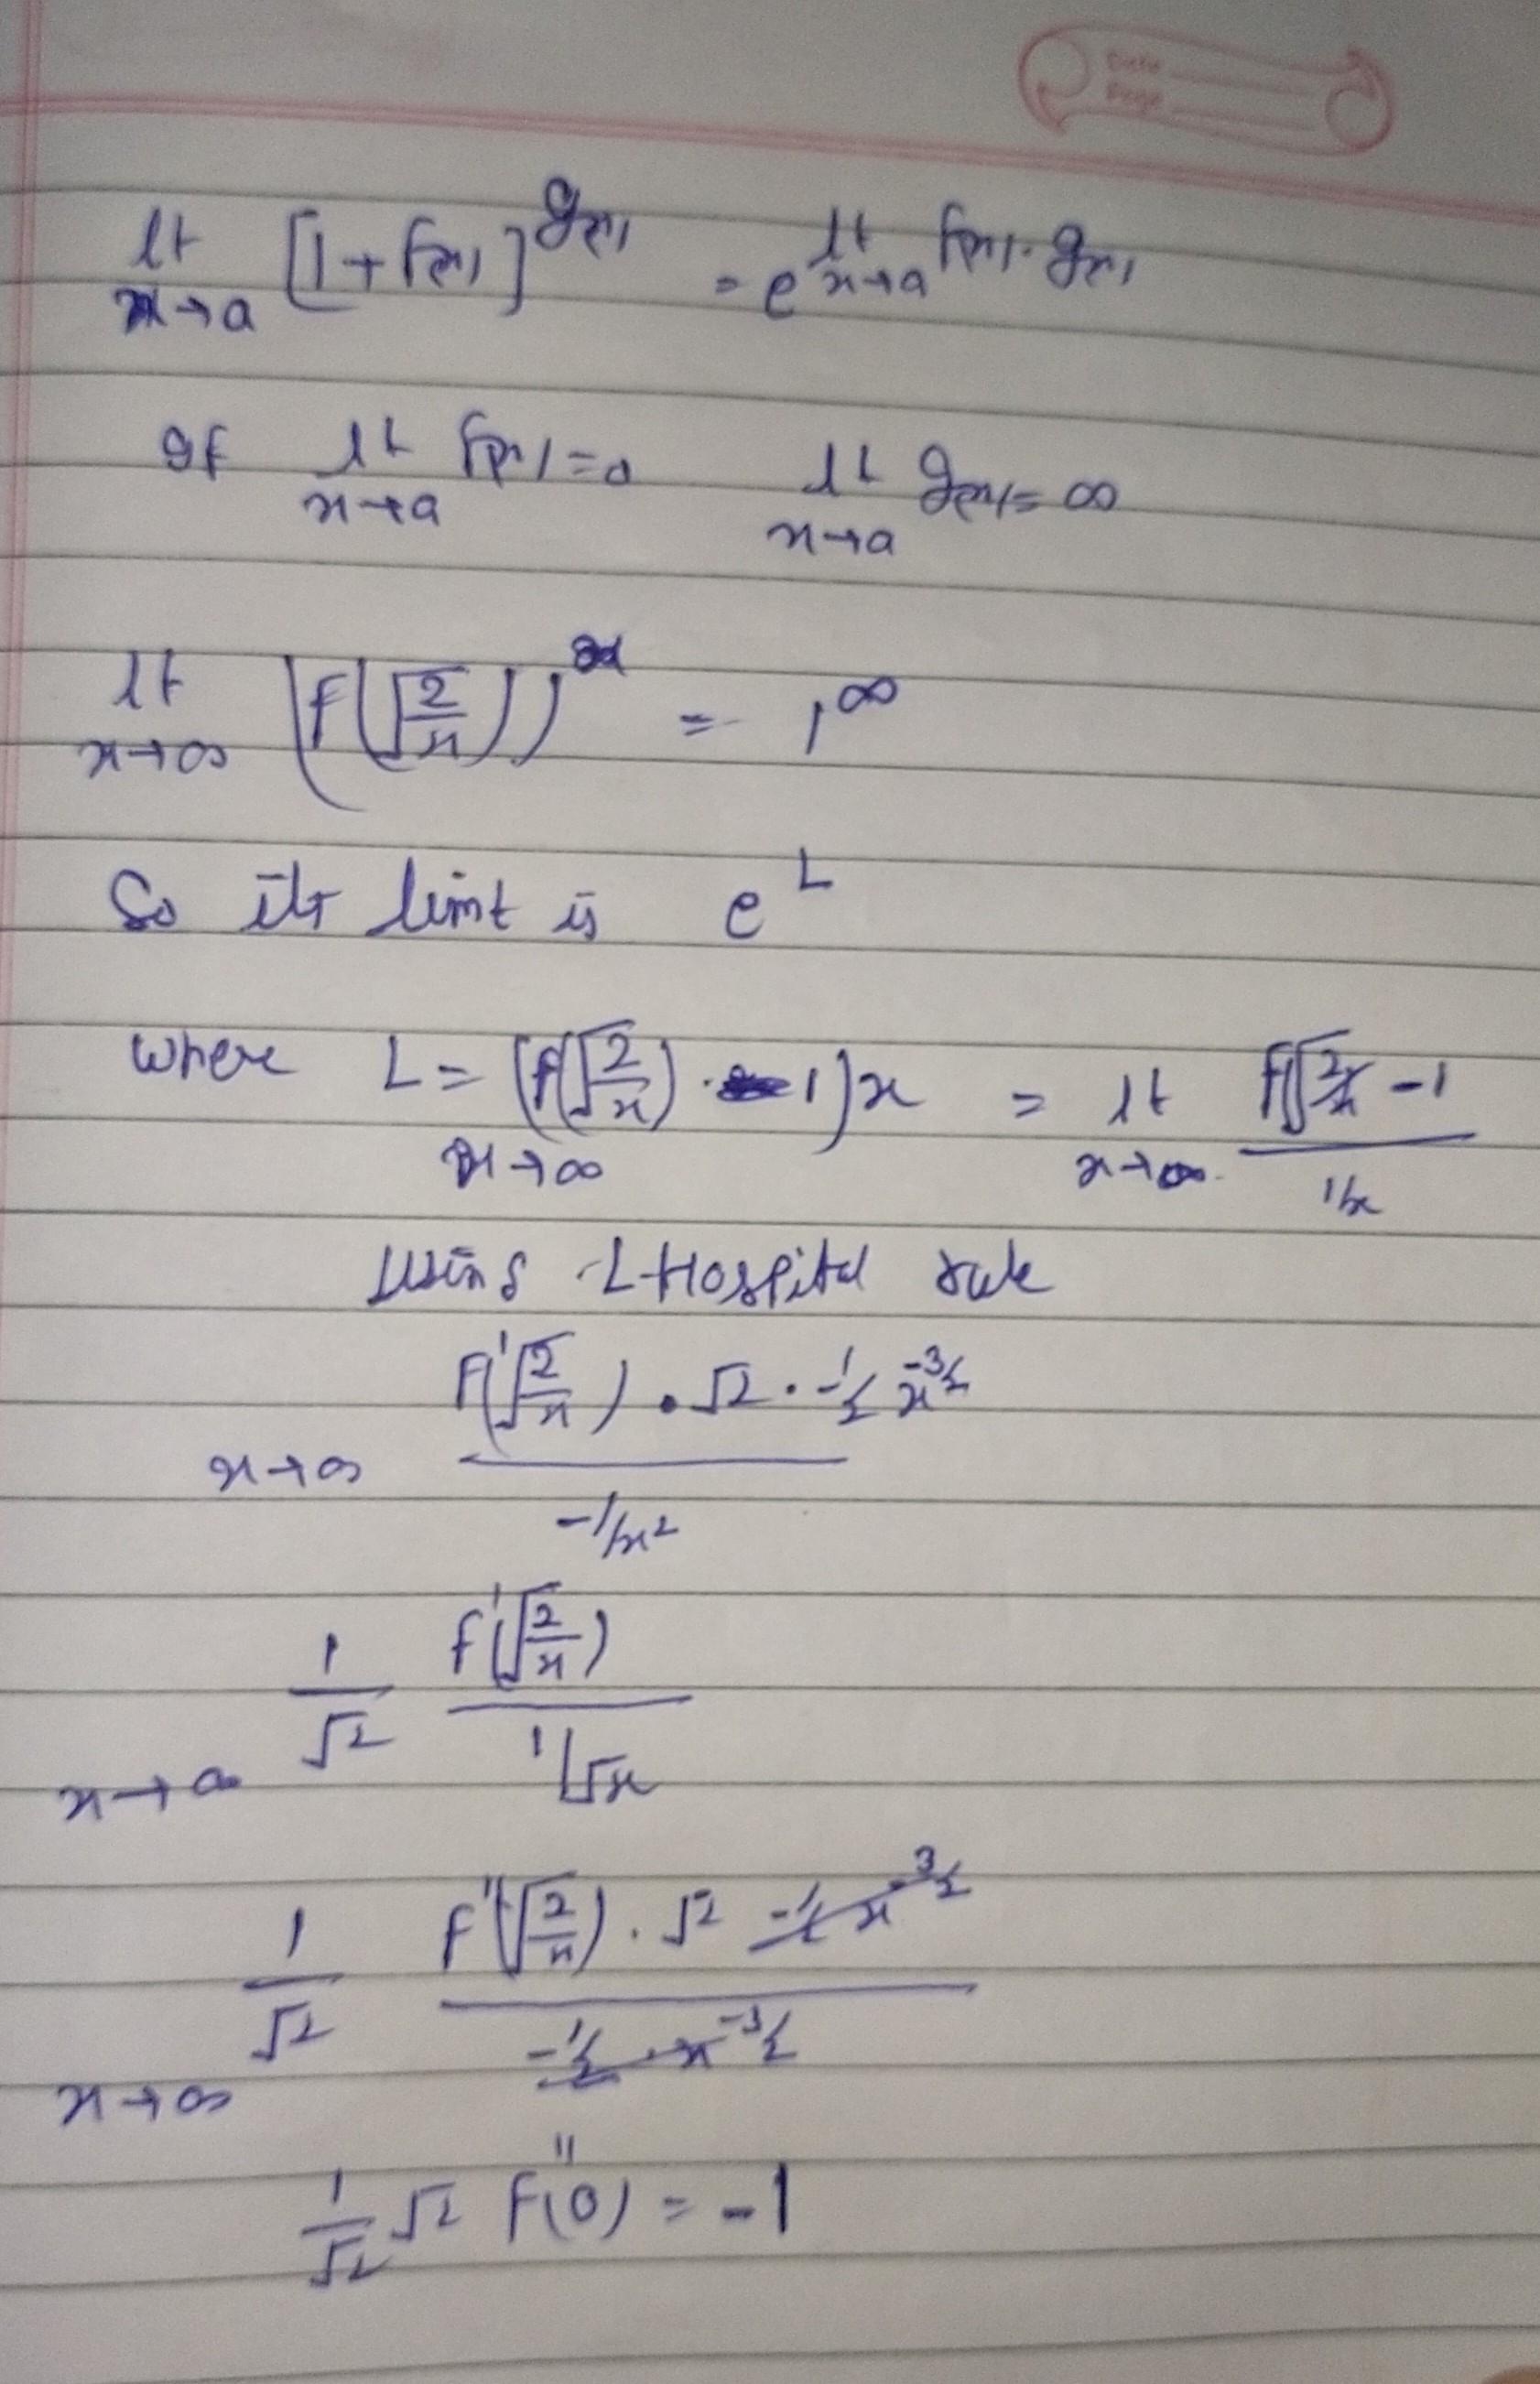 Date
Page
lt x→a [1+f(x)]^g(x) = e^lt x→a f(x).g(x)
If lt x→a f(x)=0 lt x→a g(x)=∞
lt x→∞ (f(√(2/x)))^x = 1^∞
So its limt is e^L
where L = (f(√(2/x)) - 1)x x→∞ = lt x→∞ (f(√(2/x)) - 1)/(1/x)
Using L Hospital rule
x→∞ (f'(√(2/x)) . √2 . -1/2 x^-3/2)/(-1/x²)
x→∞ 1/√2 f'(√(2/x))/(1/√x)
x→∞ 1/√2 (f''(√(2/x)) . √2 -1/2 x^-3/2)/(-1/2 . x^-3/2)
1/√2 √2 f''(0) = -1